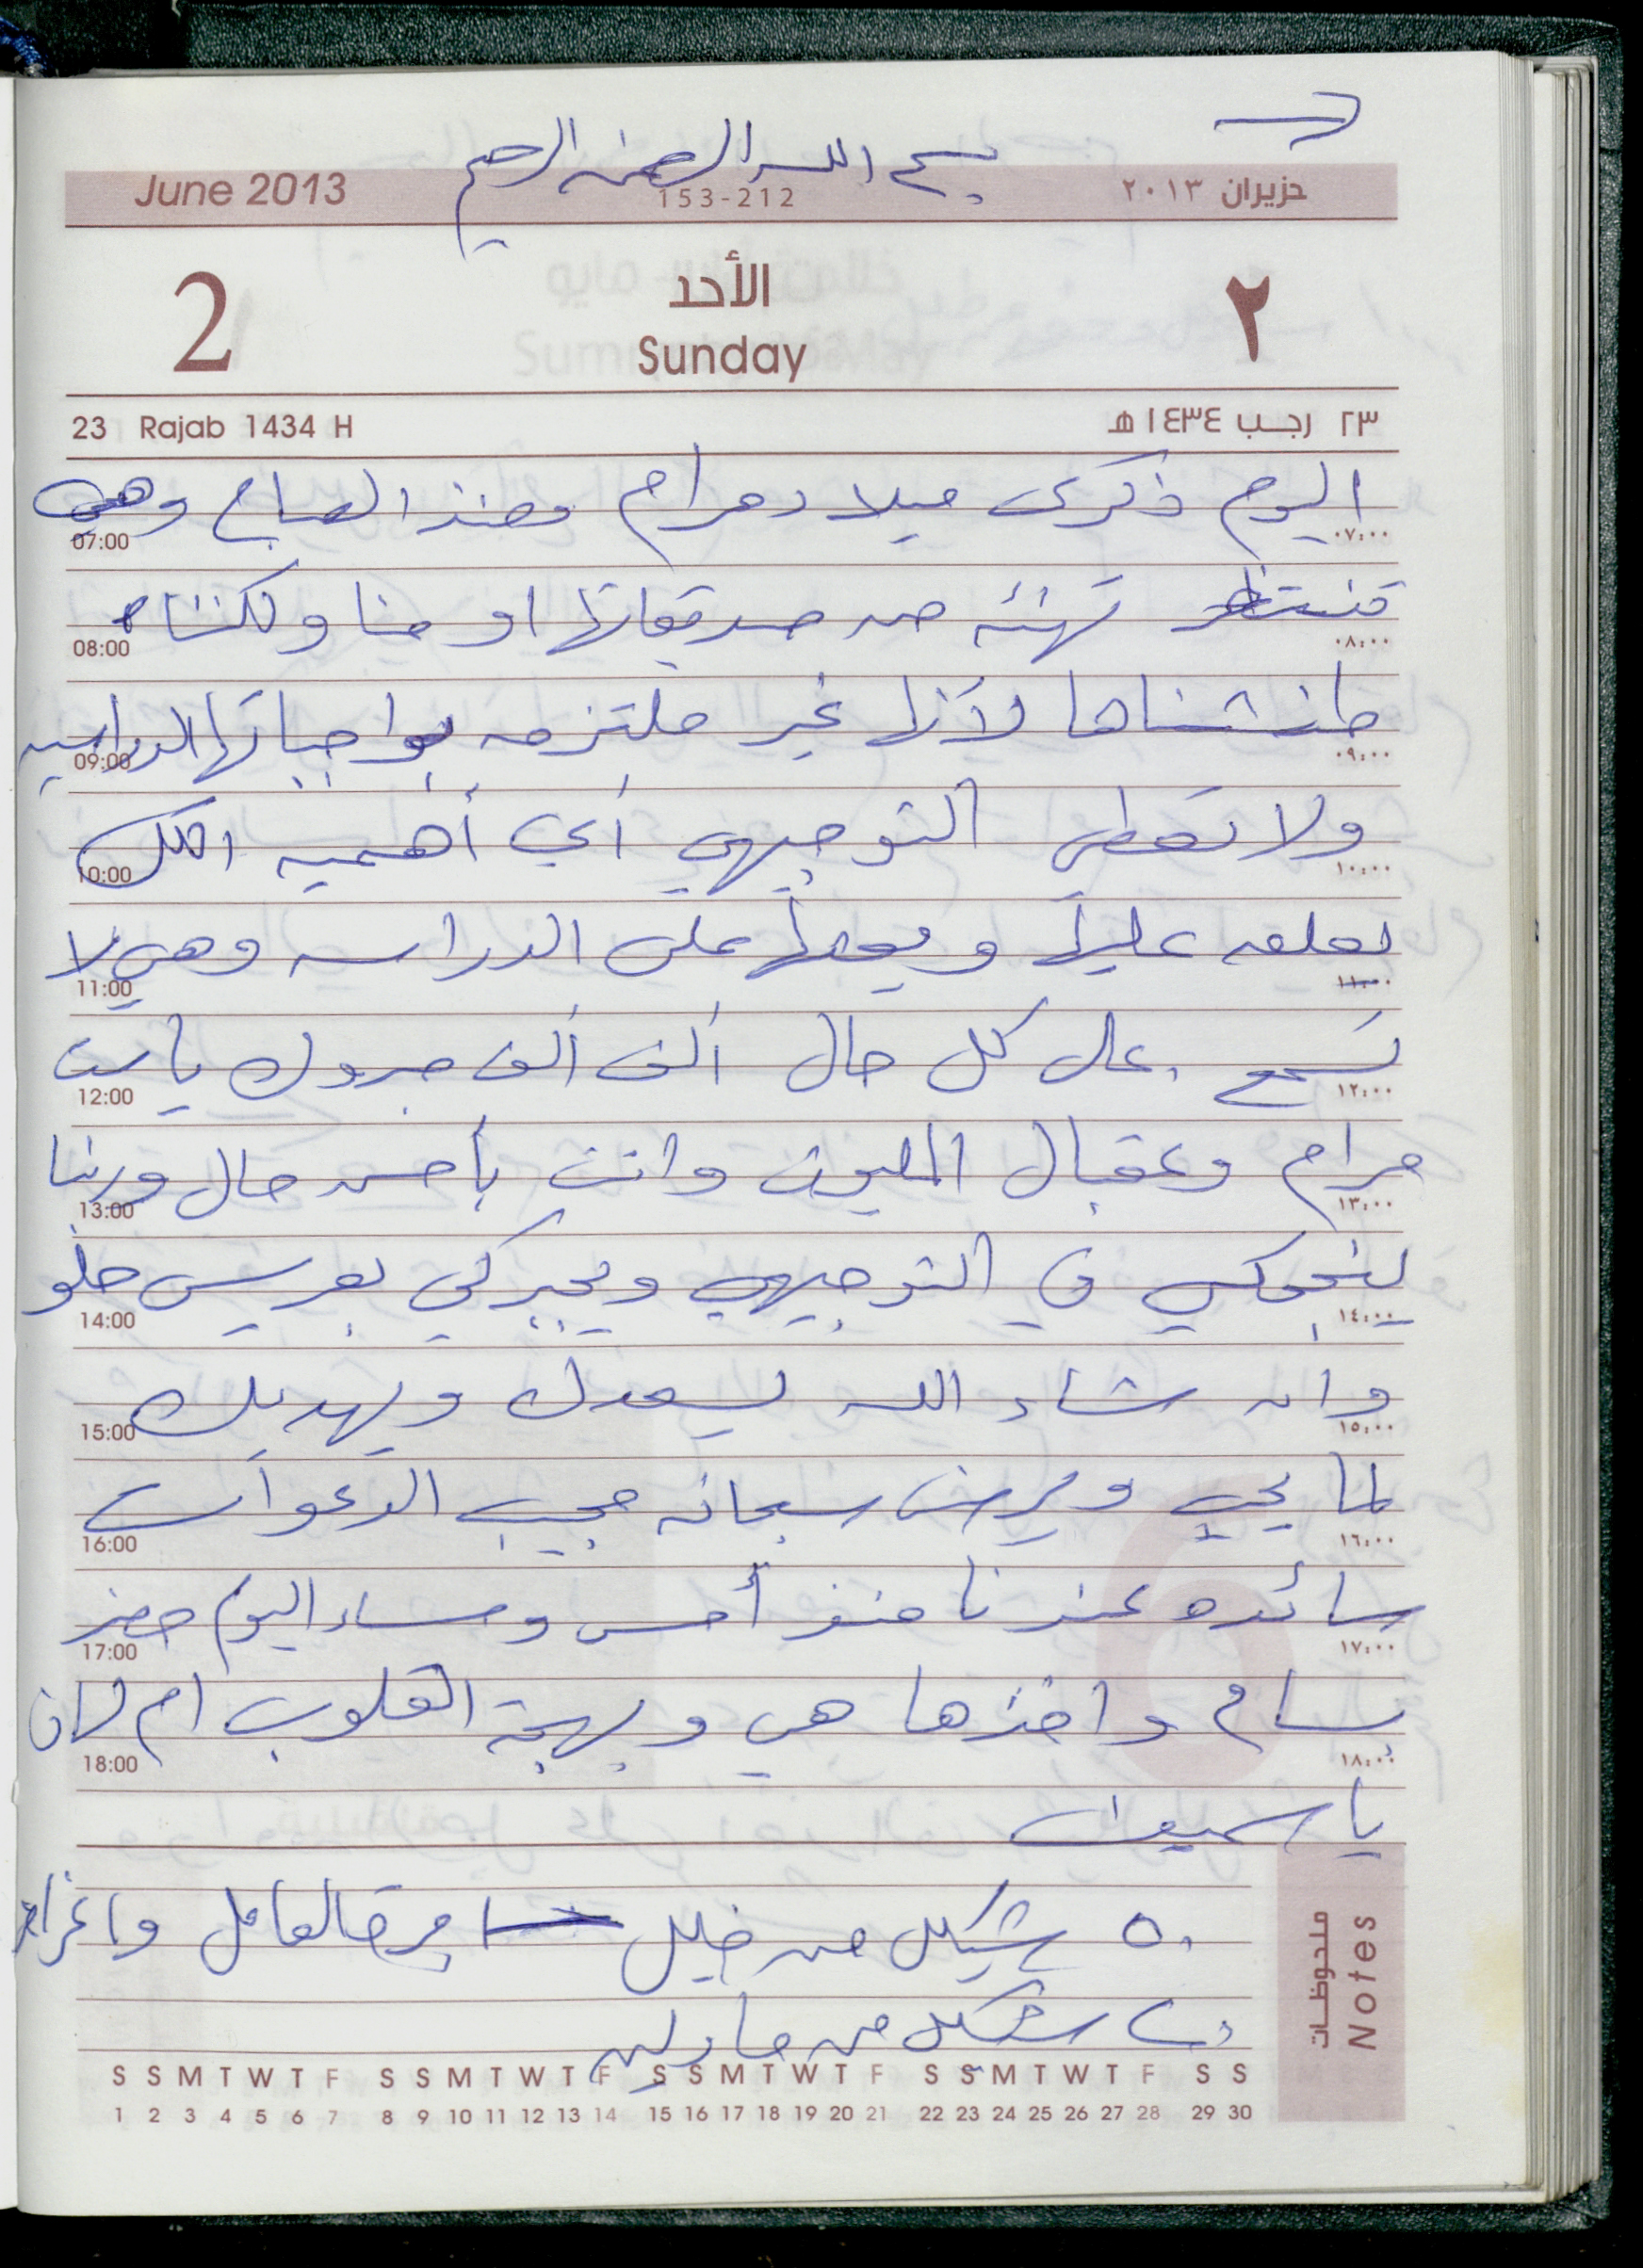 بسم الله الرحمن الرحيم
June 2013 153-212 حزيران ٢٠١٣
2 الأحد ٢
Sunday
23 Rajab 1434 H ٢٣ رجب ١٤٣٤ هـ
اليوم ذكرى ميلاد مرام ومنذ الصباح وهي
07:00 ٠٧:٠٠
تنتظر تهنئه من صديقاتها او منا ولكننا
08:00 ٠٨:٠٠
طنشناها لأنها غير ملتزمه بواجباتها الدراسيه
09:00 ٠٩:٠٠
ولا تعطي التوجيهي أي أهميه الكل
10:00 ١٠:٠٠
يعلق عليها ويحثها على الدراسه وهي لا
11:00 ١١:٠٠
تسمع . على كل حال ألف ألف مبروك يا ست
12:00 ١٢:٠٠
مرام وعقبال المليون وانت بأحسن حال وربنا
13:00 ١٣:٠٠
ينجحكي في التوجيهي ويجبركي بعريس حلو
14:00 ١٤:٠٠
وان شاء الله يسعدك ويهديك
15:00 ١٥:٠٠
لما يحب ويرضى سبحانه مجيب الدعوات
16:00 ١٦:٠٠
سائده عندنا منذ أمس ومساء اليوم حضر
17:00 ١٧:٠٠
بسام واخذها هي وبهجة القلوب ام لان
18:00 ١٨:٠٠
يا
٥٠ شيكل من خليل العامل
٢٠ شيكل من مادلين
ملحوظات
Notes
S S M T W T F S S M T W T F S S M T W T F S S M T W T F S S
1 2 3 4 5 6 7 8 9 10 11 12 13 14 15 16 17 18 19 20 21 22 23 24 25 26 27 28 29 30